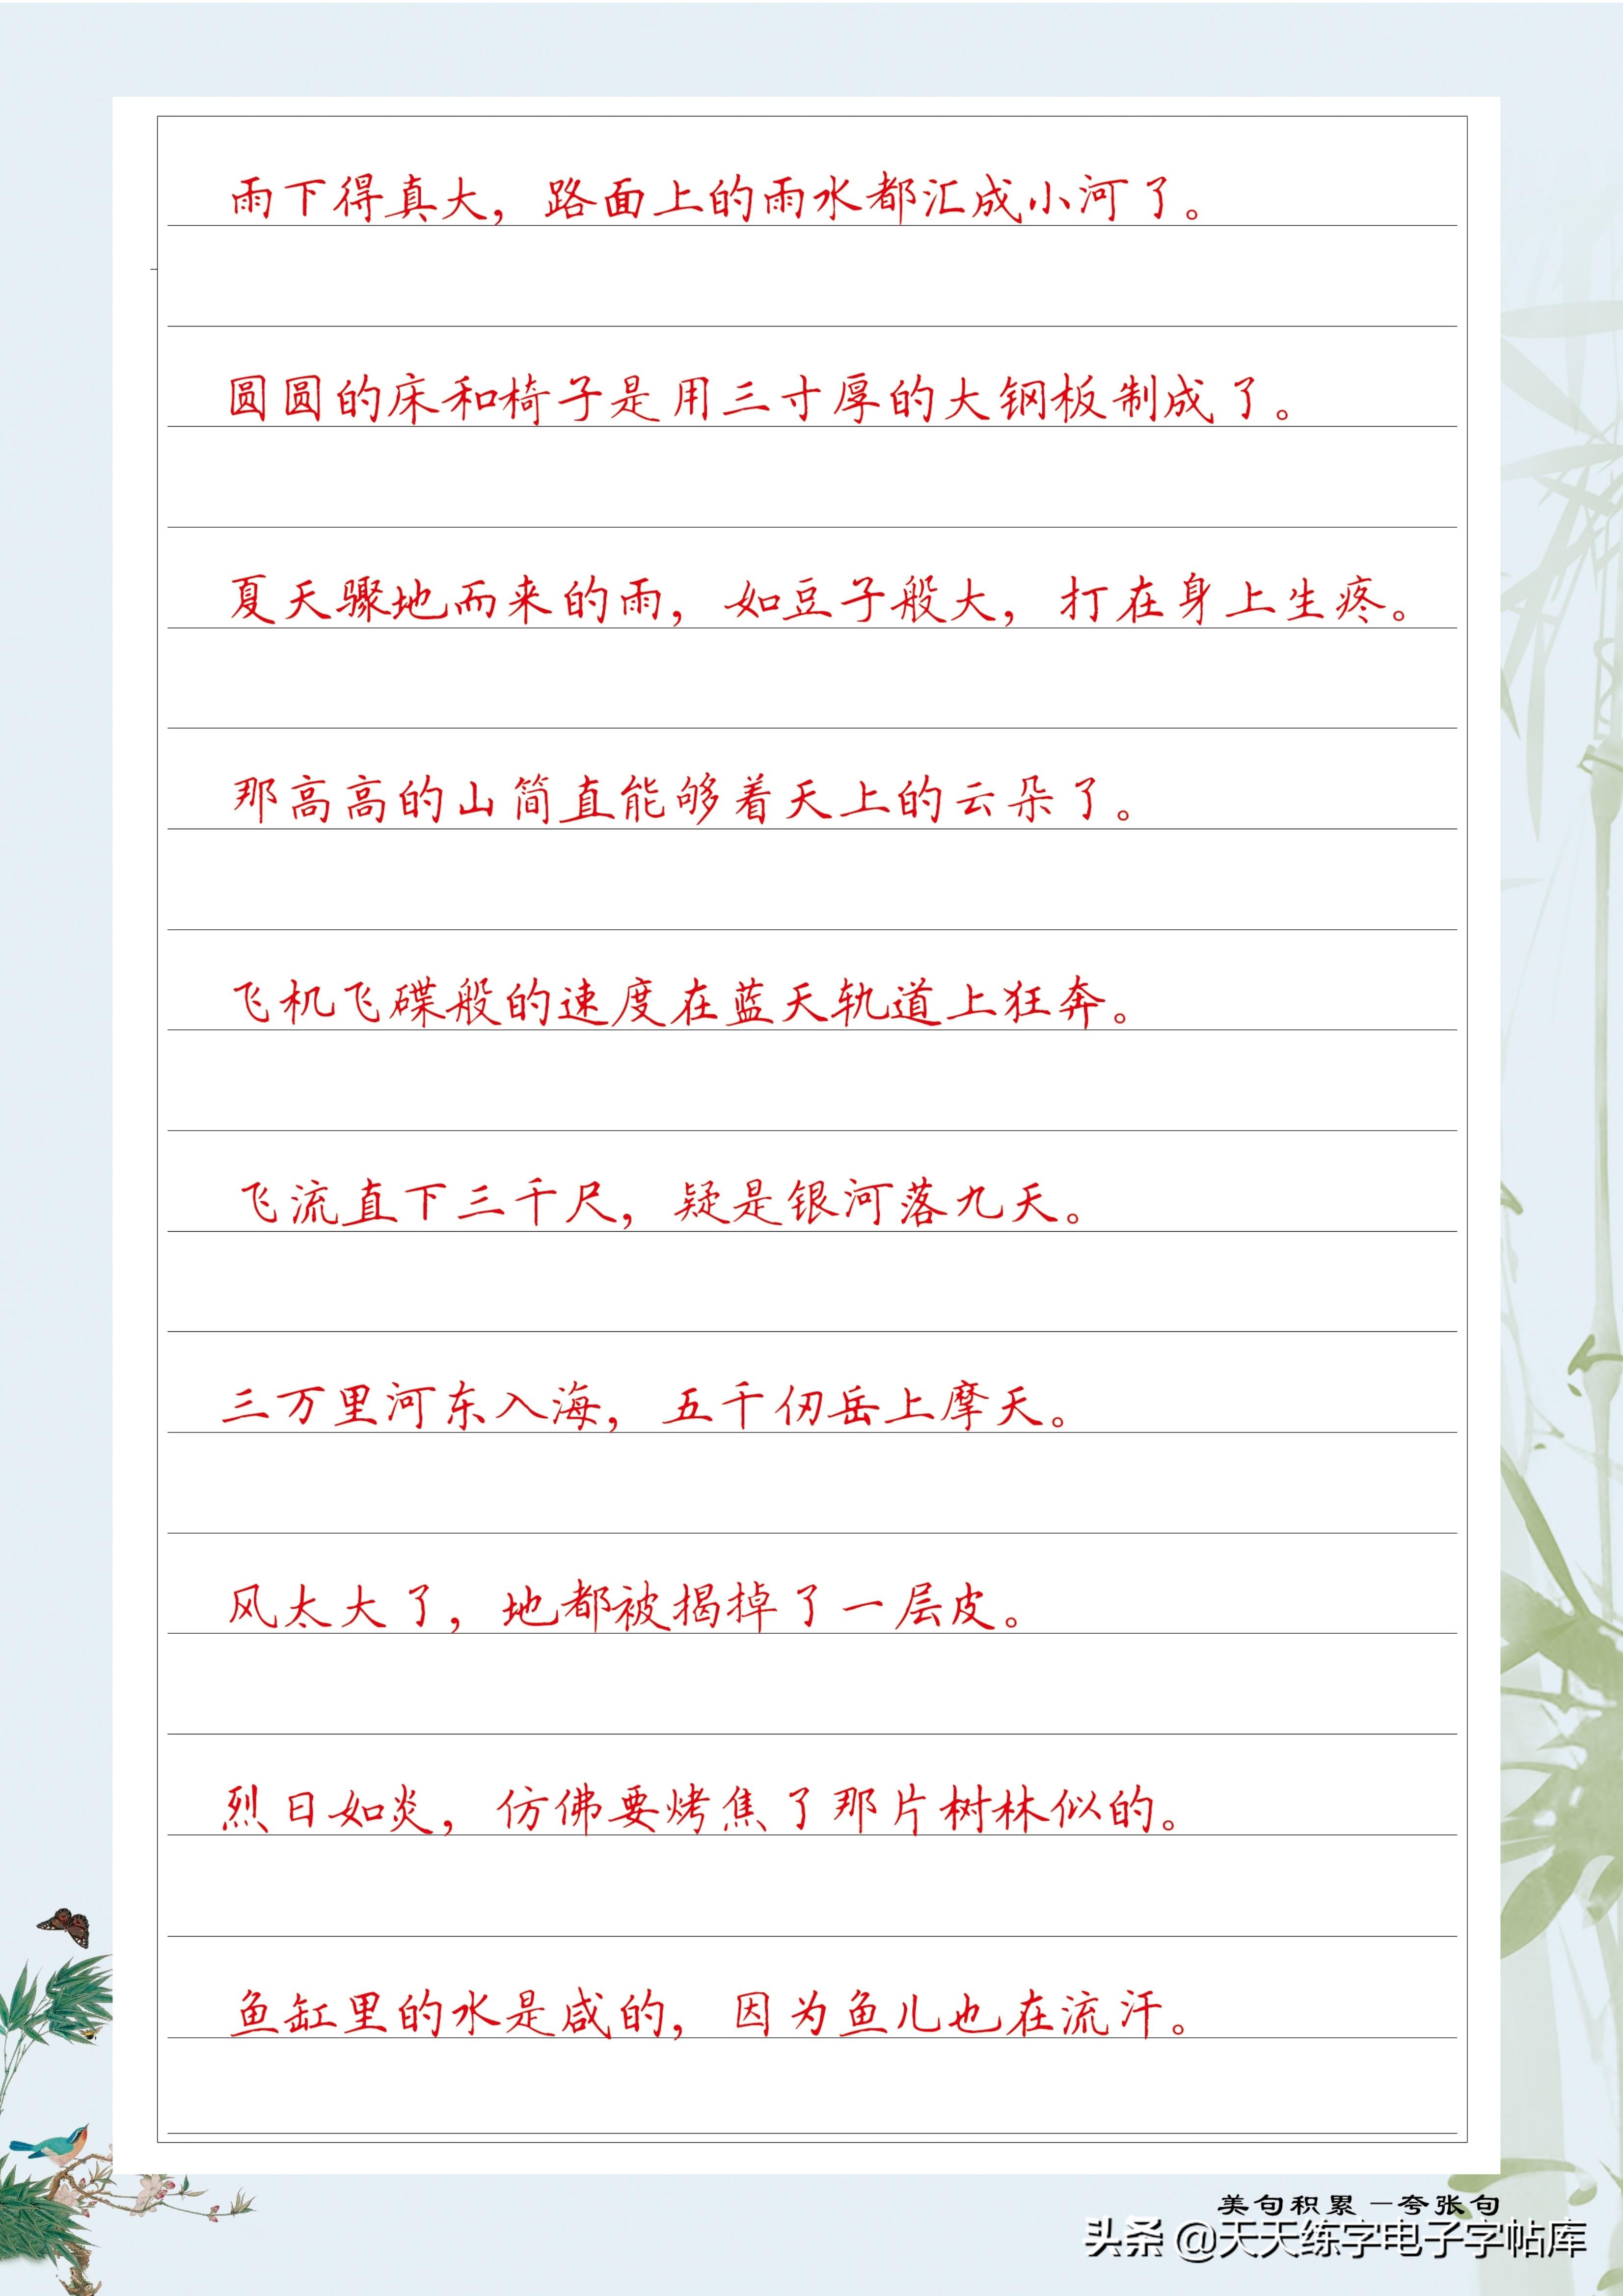 雨下得真大，路面上的雨水都汇成小河了。
圆圆的床和椅子是用三寸厚的大钢板制成了。
夏天骤地而来的雨，如豆子般大，打在身上生疼。
那高高的山简直能够着天上的云朵了。
飞机飞碟般的速度在蓝天轨道上狂奔。
飞流直下三千尺，疑是银河落九天。
三万里河东入海，五千仞岳上摩天。
风太大了，地都被揭掉了一层皮。
烈日如炎，仿佛要烤焦了那片树林似的。
鱼缸里的水是咸的，因为鱼儿也在流汗。
美句积累—夸张句
头条 @天天练字电子字帖库